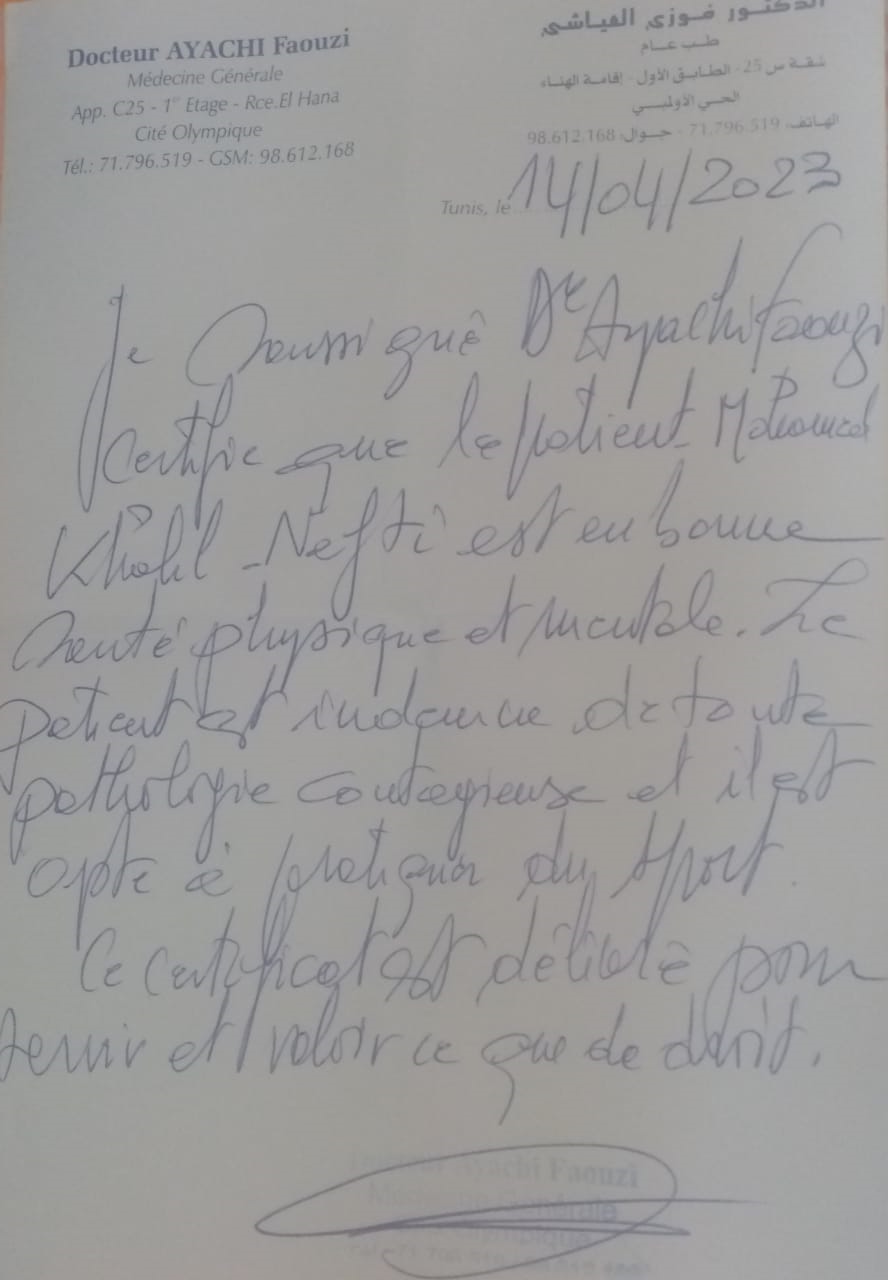 Docteur AYACHI Faouzi
Médecine Générale
App. C25 - 1er Etage - Rce.El Hana
Cité Olympique
Tél.: 71.796.519 - GSM: 98.612.168
الدكتور فوزي العياشي
طب عام
شقة س 25 - الطابق الأول - إقامة الهناء
الحي الأولمبي
الهاتف: 71.796.519 - جوال: 98.612.168
Tunis, le 14/04/2023
Je soussigné Dr Ayachi Faouzi
Certifie que le patient Mohamed
Khalil Nefti est en bonne
santé physique et mentale. Le
patient est indemne de toute
pathologie contagieuse et il est
apte à pratiquer du sport.
Ce certificat est délivré pour
servir et valoir ce que de droit.
Docteur Ayachi Faouzi
Médecine Générale
Olympique